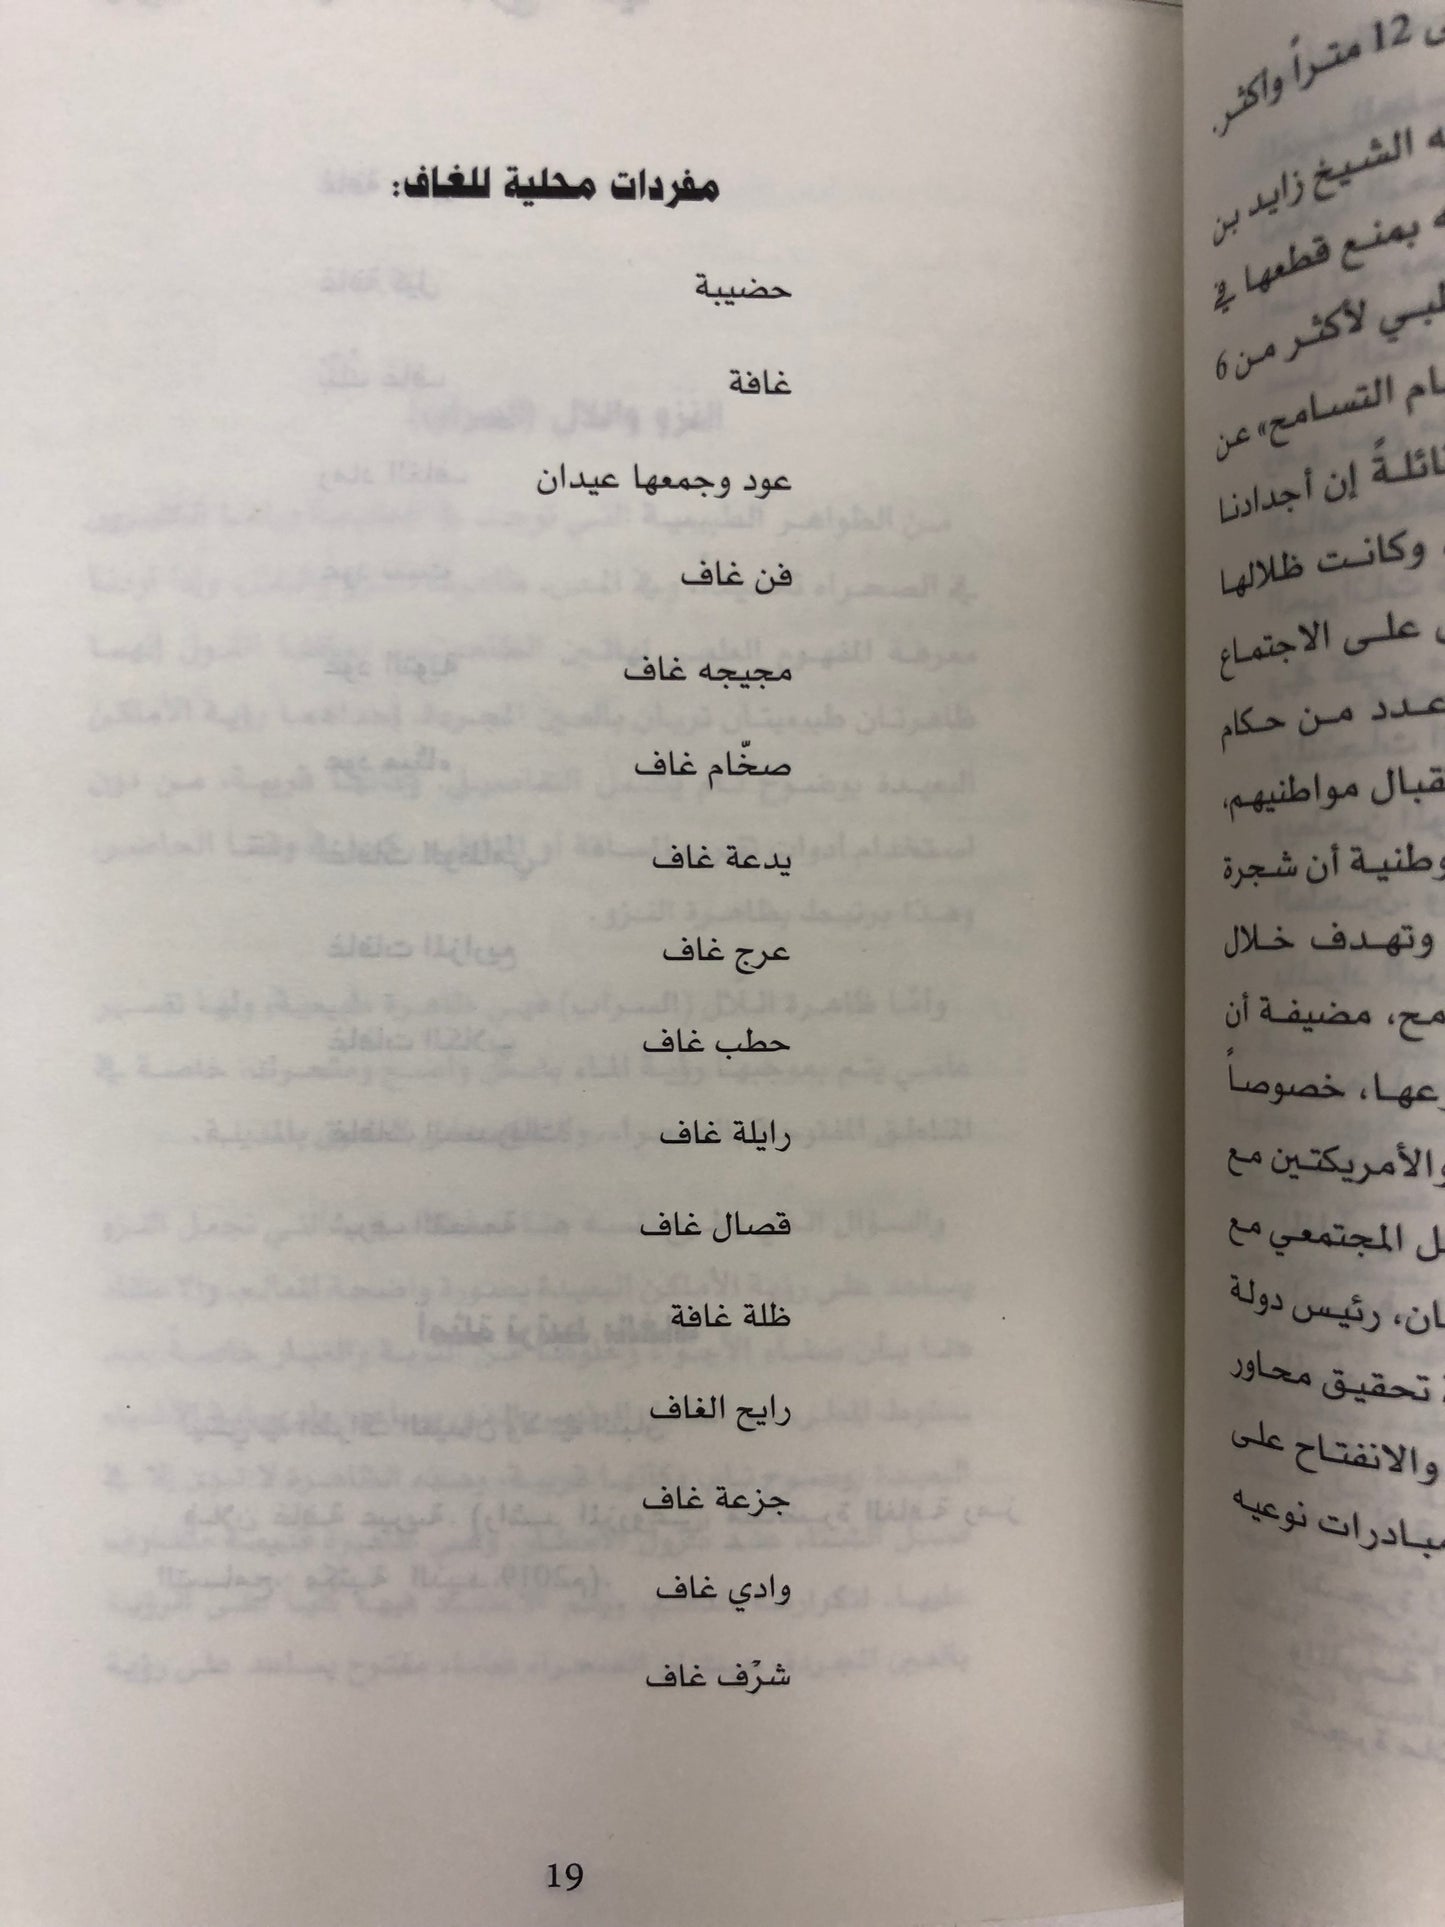 مفردات محلية للغاف:
حضيبة
غافة
عود وجمعها عيدان
فن غاف
مجيجه غاف
صخّام غاف
يدعة غاف
عرج غاف
حطب غاف
رايلة غاف
قصال غاف
ظلة غافة
رايح الغاف
جزعة غاف
وادي غاف
شرْف غاف
19
12 متراً وأكثر.
الشيخ زايد بن
بمنع قطعها في
لأكثر من 6
التسامح» عن
إن أجدادنا
وكانت ظلالها
على الاجتماع
عدد من حكام
مواطنيهم،
أن شجرة
وتهدف خلال
مضيفة أن
خصوصاً
والأمريكتين مع
المجتمعي مع
رئيس دولة
تحقيق محاور
والانفتاح على
نوعيه